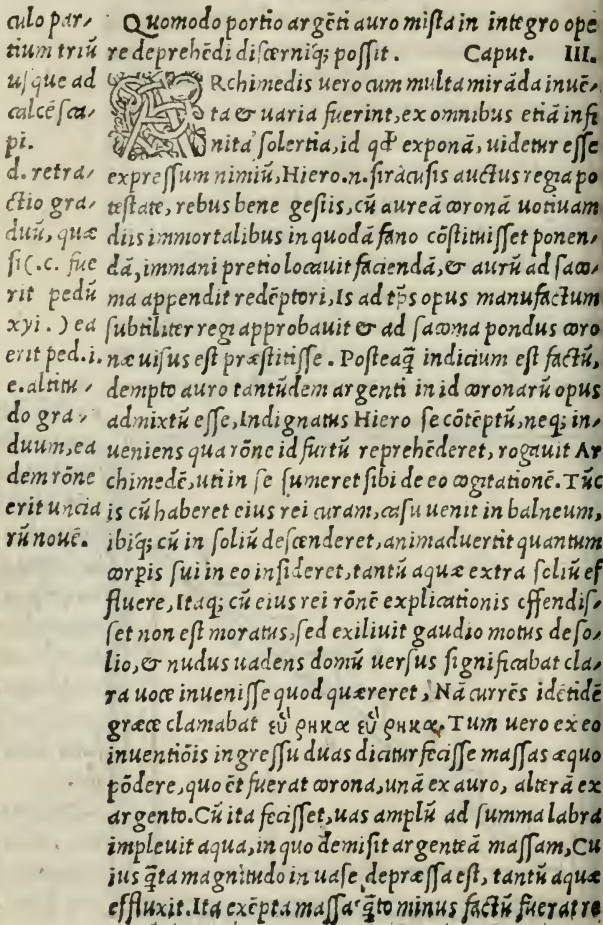 culo par,
tium triũ
usque ad
calcẽ sca,
pi.
d. retra,
ctio gra,
duũ, quæ
si(.c. fue
rit pedũ
xyi.) ea
erit ped.i.
e. altitu,
do gra,
duum, ea
dem rõne
erit uncia
rũ nouẽ.
Quomodo portio argẽti auro mista in integro ope
re deprehẽdi discerniq; possit. Caput. III.
ARchimedis uero cum multa mirãda inuẽ,
ta & uaria fuerint, ex omnibus etiã infi
nita solertia, id qđ exponã, uidetur esse
expressum nimiũ, Hiero.n.siracusis auctus regia po
testate, rebus bene gestis, cũ aureã coronã uotiuam
diis immortalibus in quodã fano cõstituisset ponen,
dã, immani pretio locauit faciendã, & aurũ ad saco,
ma appendit redẽptori, Is ad tp̃s opus manufactum
subtiliter regi approbauit & ad sacoma pondus coro
næ uisus est præstitisse. Posteaq̃ indicium est factũ,
dempto auro tantũdem argenti in id coronarũ opus
admixtũ esse, Indignatus Hiero se cõtẽptũ, neq; in,
ueniens qua rõne id furtũ reprehẽderet, rogauit Ar
chimedẽ, uti in se sumeret sibi de eo cogitationẽ. Tũc
is cũ haberet eius rei curam, casu uenit in balneum,
ibiq; cũ in soliũ descenderet, animaduertit quantum
corpis sui in eo insideret, tantũ aquæ extra soliũ ef
fluere, Itaq; cũ eius rei rõnẽ explicationis offendis,
set non est moratus, sed exiliuit gaudio motus de so,
lio, & nudus uadens domũ uersus significabat cla,
ra uoce inuenisse quod quæreret, Nã currẽs idẽtidẽ
græce clamabat εὑρηκα εὑρηκα. Tum uero ex eo
inuentiõis ingressu duas dicitur fecisse massas æquo
põdere, quo ẽt fuerat corona, unã ex auro, alterã ex
argento. Cũ ita fecisset, uas amplũ ad summa labra
impleuit aqua, in quo demisit argenteã massam, Cu
ius q̃ta magnitudo in uase depræssa est, tantũ aquæ
effluxit. Ita exẽpta massa q̃to minus factũ fuerat re